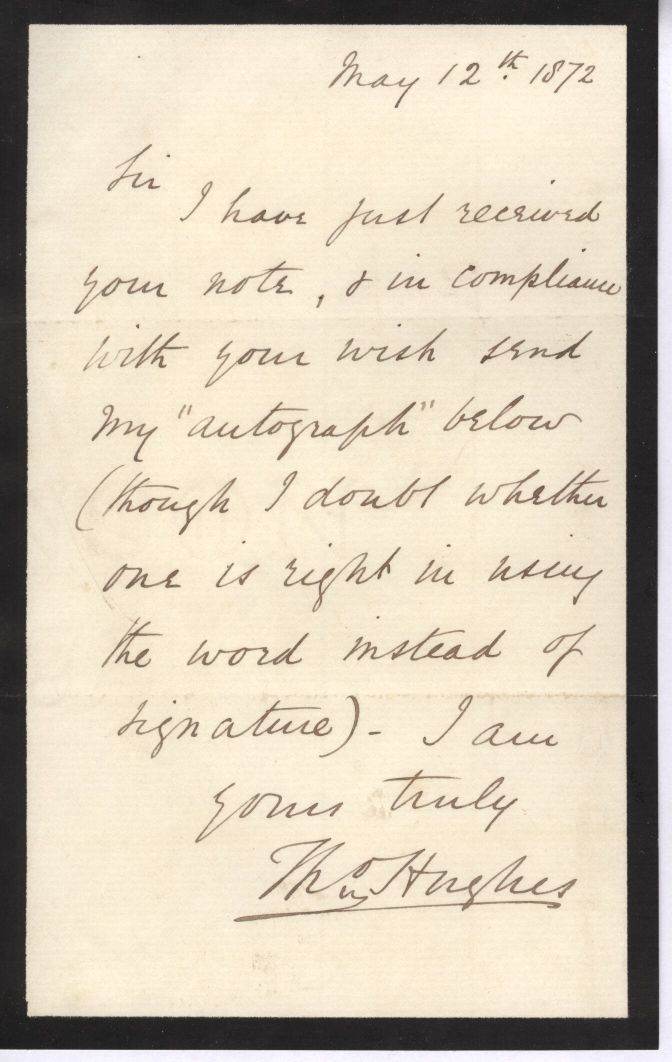 May 12th. 1872
Sir
I have just received
your note, & in compliance
with your wish send
my "autograph" below
(though I doubt whether
one is right in using
the word instead of
signature) - I am
yours truly
Thos Hughes